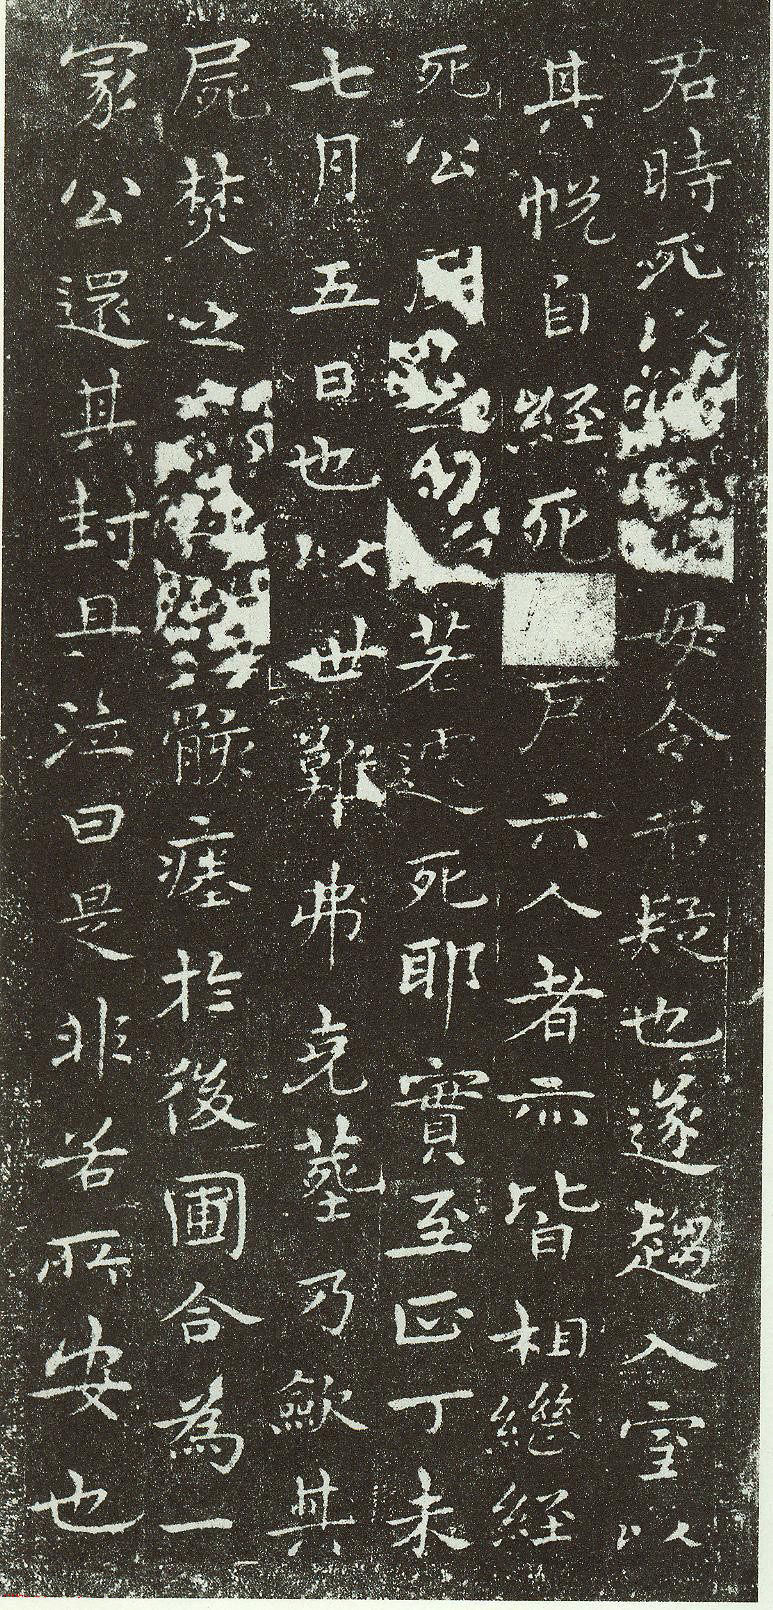 君時死以毋令疑也遂趨入室以
其帨自經死戶六人者亦皆相繼經
死公若遽死耶實至正丁未
七月五日也以世難弗克葬乃歛其
屍焚之骸瘞於後圃合為一
冢公還其封且泣曰是非若所安也